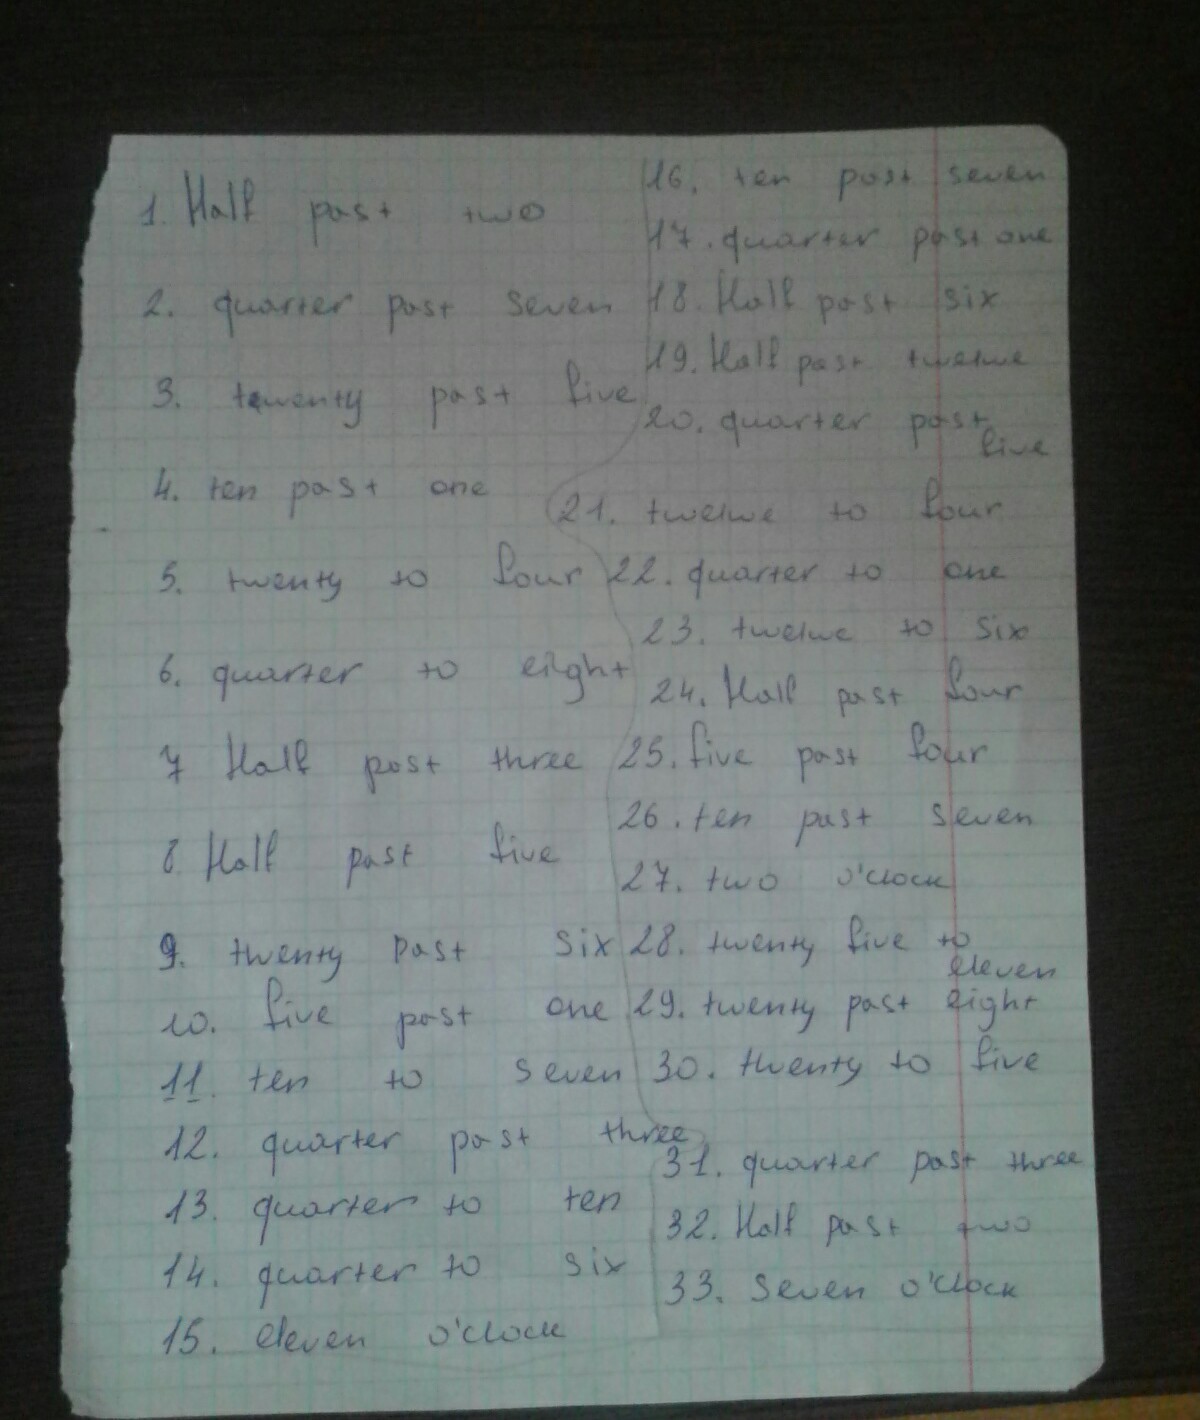 1. Half past two
2. quarter past seven
3. twenty past five
4. ten past one
5. twenty to four
6. quarter to eight
7 Half past three
8. Half past five
9. twenty past six
10. five past one
11. ten to seven
12. quarter past three
13. quarter to ten
14. quarter to six
15. eleven o'clock
16. ten past seven
17. quarter past one
18. Half past six
19. Half past twelwe
20. quarter past
five
21. twelwe to four
22. quarter to one
23. twelwe to six
24. Half past four
25. five past four
26. ten past seven
27. two o'clock
28. twenty five to
eleven
29. twenty past eight
30. twenty to five
31. quarter past three
32. Half past two
33. Seven o'clock